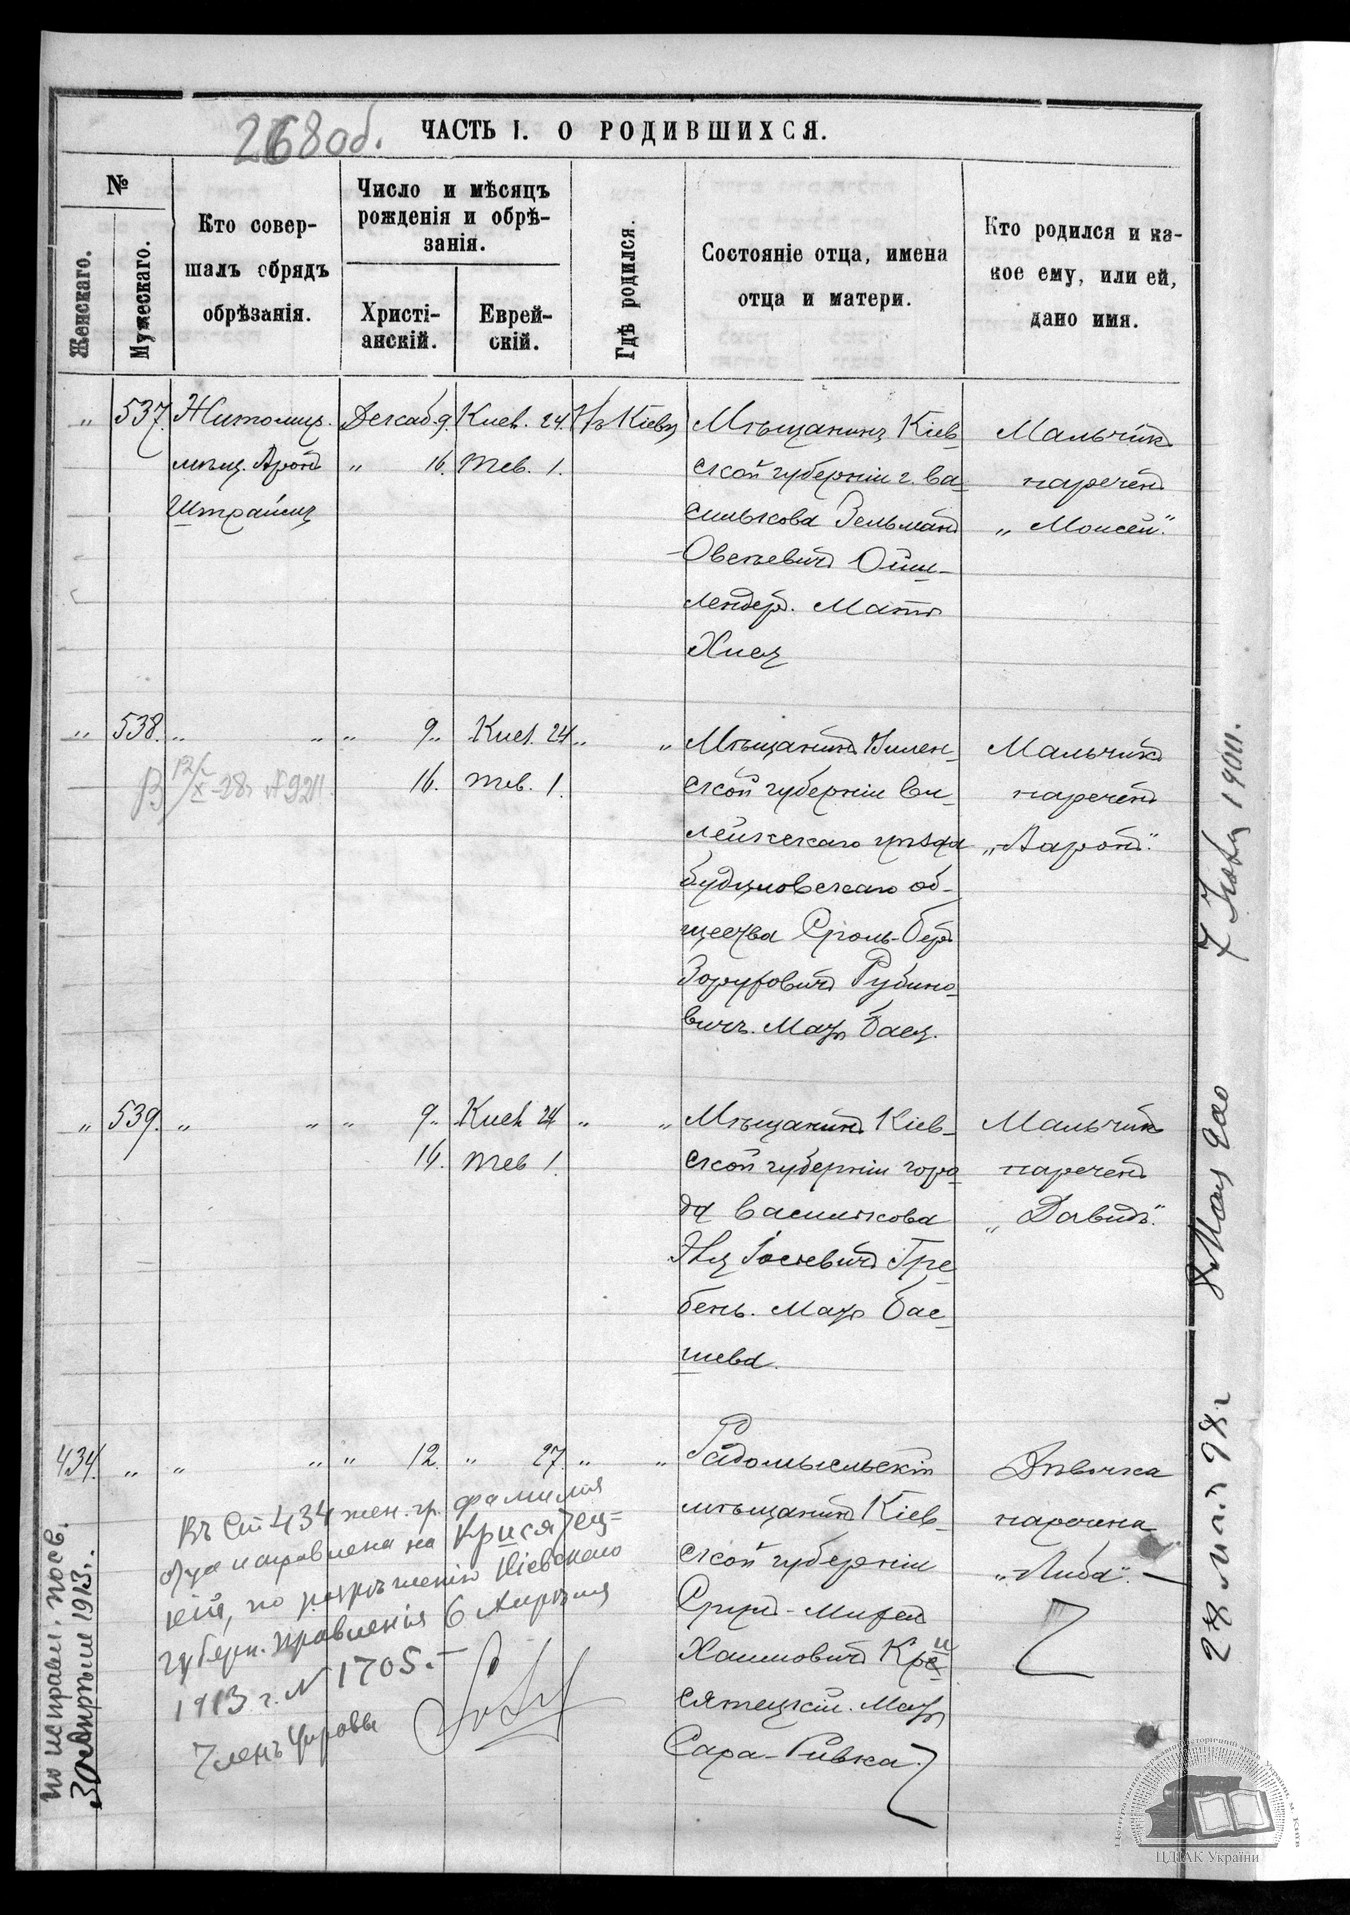 268 об.
ЧАСТЬ I. О РОДИВШИХСЯ.
№
Женскаго.
Мужескаго.
Кто совер-
шалъ обрядъ
обрѣзанія.
Число и мѣсяцъ
рожденія и обрѣ-
занія.
Христі-
анскій.
Еврей-
скій.
Гдѣ родился.
Состояніе отца, имена
отца и матери.
Кто родился и ка-
кое ему, или ей,
дано имя.
„ 537. Житомир.
мѣщ. Аронъ
Штрайсъ
Декаб. 9.
„ 16.
Кисл. 24.
Тев. 1.
Въ Кіевѣ
Мѣщанинъ Кіев-
ской губерніи г. Ва-
силькова Зельманъ
Овсеевичъ Ойш-
лендеръ. Мать
Хися
Мальчикъ
нареченъ
„Моисей".
„ 538. „ „
„ 9.
16.
Кисл. 24
Тев. 1.
„ „
Мѣщанинъ Вилен-
ской губерніи Ви-
лейскскаго уѣзда
Будцловскаго об-
щества Сроль-Беръ
Рубино-
вичъ. Мать Бася.
Мальчикъ
нареченъ
„Ааронъ".
„ 539. „ „
„ 9.
16.
Кисл. 24
Тев 1.
„ „
Мѣщанинъ Кіев-
ской губерніи горо-
да Василькова
Іосіевичъ Гре-
бень. Мать Бас-
шева.
Мальчикъ
нареченъ
„Давидъ".
434. „ „ „
„ 12.
„ 27.
„ „
Радомысльскій
мѣщанинъ Кіев-
ской губерніи
Сруль-Мифель
Хаимовичъ Кре-
и
сятецкій. Мать
Сара-Ривка
Дѣвочка
наречена
„Либа".
Въ Ст 434 жен. гр. фамилія
отца исправлена на Крисятец-
кій, по разрѣшенію Кіевскаго
губерн. Правленія 6 Апрѣля
1913 г. N 1705.
Членъ Управы
по исправл. посв.
30 Апрѣля 1913 г.
28 Мая 98 г
8 Мая 900
7 1904.
ЦДІАК України